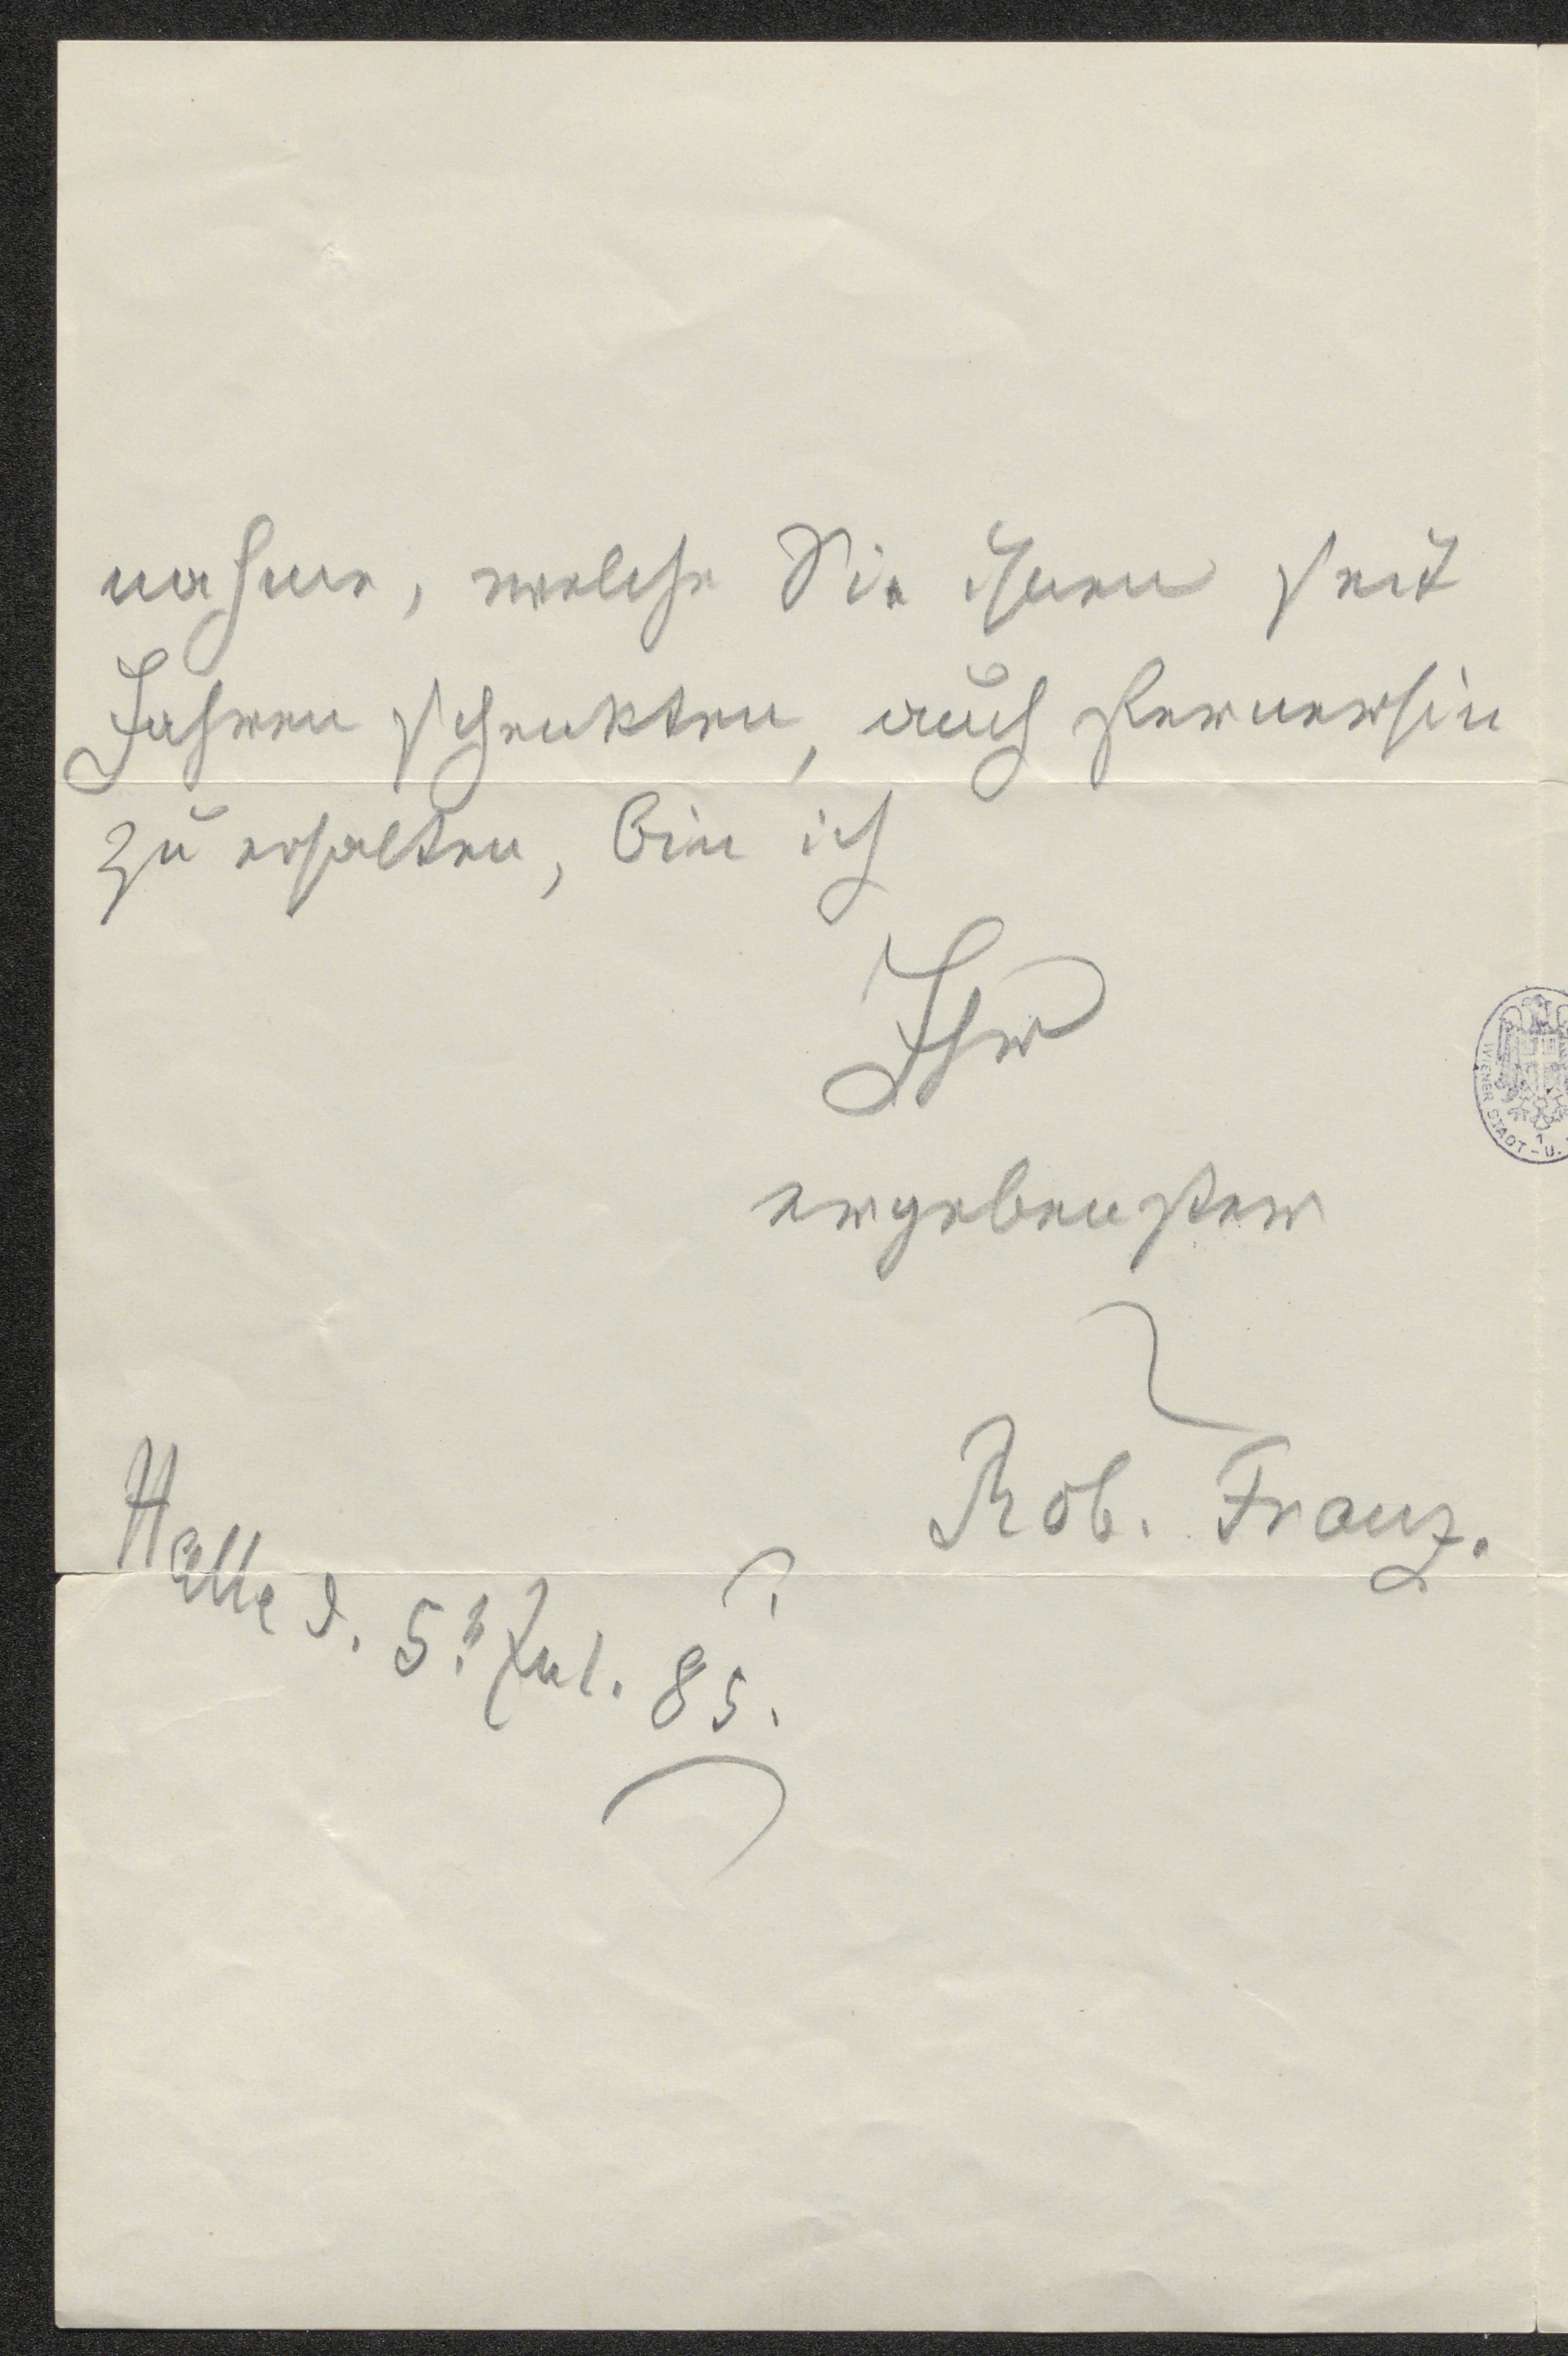 nahme, welche Sie ihnen seit
Jahren schenkten, auch fernerhin
zu erhalten, bin ich
Ihr
ergebenster
Rob. Franz.
Halle d. 5. Jul. 85.
WIENER STADT - U.